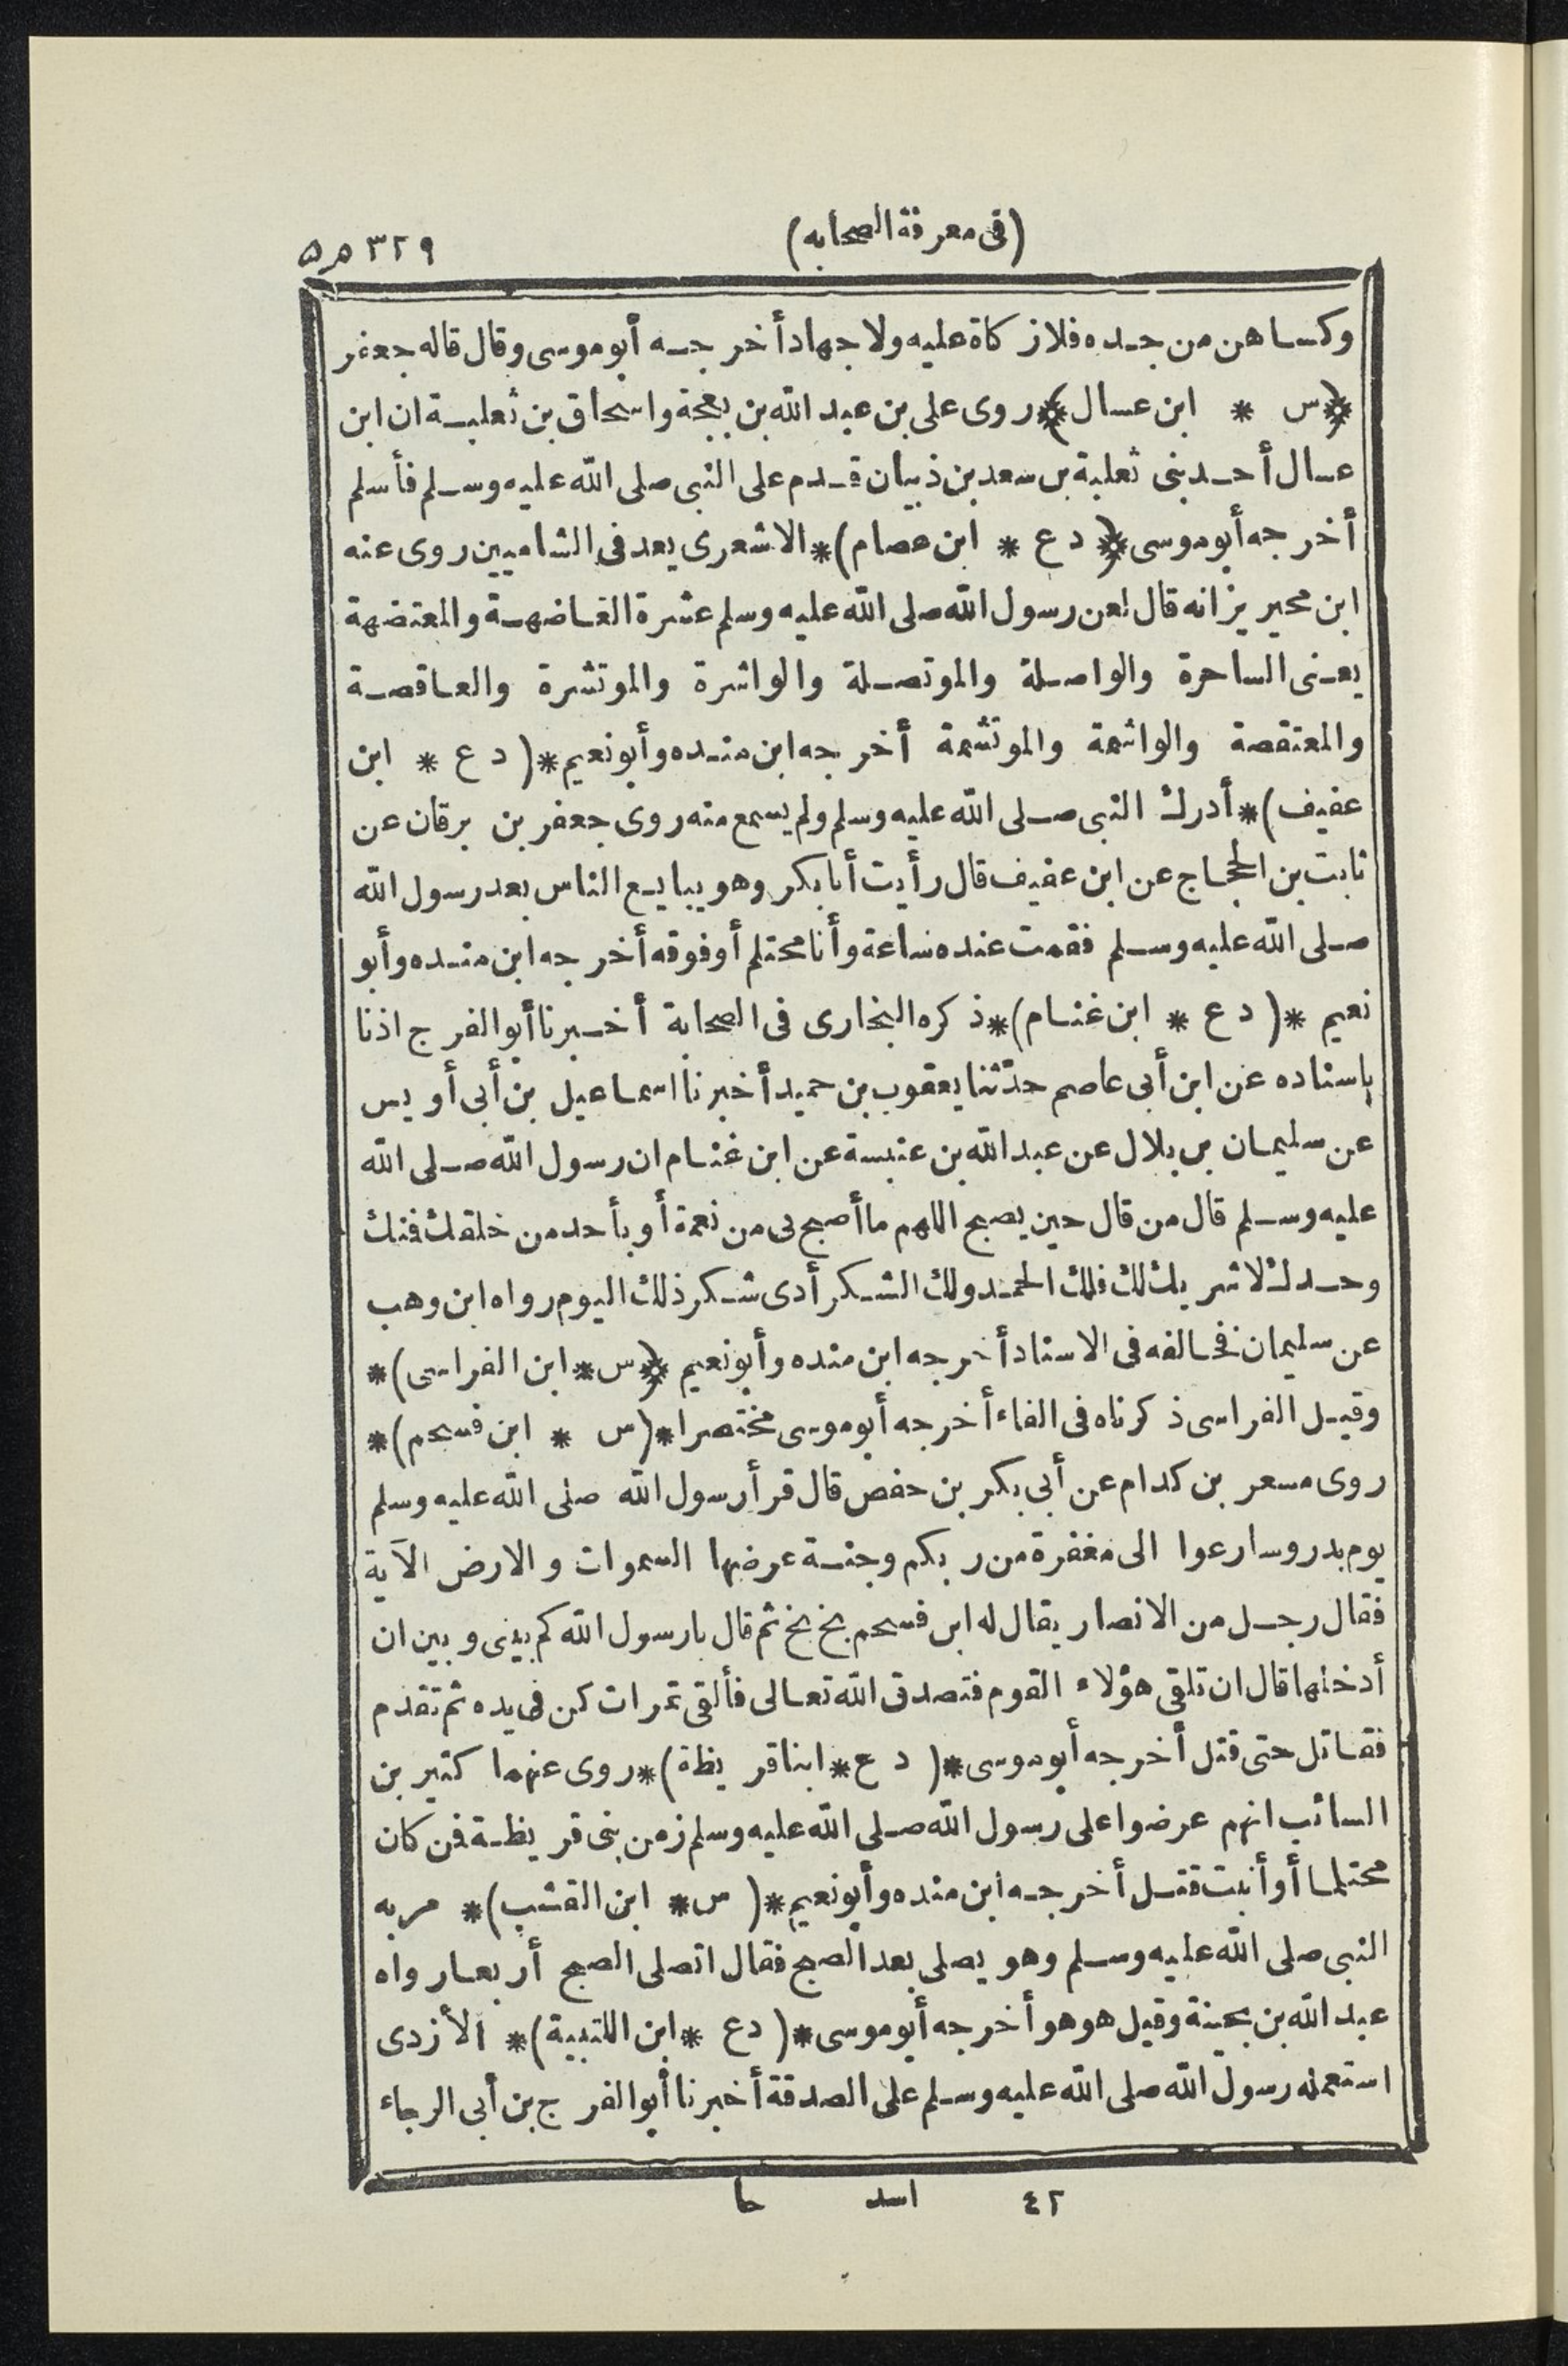 (فى معرفة الصحابه)
٣٢٩
وكساهن من جده فلا زكاة عليه ولا جهاد أخرجه أبو موسى وقال قاله جعفر
﴿س * ابن عسال﴾ روى على بن عبد الله بن بعجة واسحاق بن ثعلبة ان ابن
عسال أحد بنى ثعلبة بن سعد بن ذبيان قدم على النبى صلى الله عليه وسلم فأسلم
أخرجه أبو موسى ﴿ د ع * ابن عصام)* الاشعرى يعد فى الشاميين روى عنه
ابن محيريز انه قال لعن رسول الله صلى الله عليه وسلم عشرة الغاضهة والمعتضهة
يعنى الساحرة والواصلة والموتصلة والواشرة والموتشرة والعاقصة
والمعتقصة والواشمة والموتشمة أخرجه ابن منده وأبو نعيم *( د ع * ابن
عفيف)* أدرك النبى صلى الله عليه وسلم ولم يسمع منه روى جعفر بن برقان عن
ثابت بن الحجاج عن ابن عفيف قال رأيت أبا بكر وهو يبايع الناس بعد رسول الله
صلى الله عليه وسلم فقمت عنده ساعة وأنا محتلم أو فوقه أخرجه ابن منده وأبو
نعيم *( د ع * ابن غنام)* ذكره البخارى فى الصحابة أخبرنا أبو الفرج اذنا
باسناده عن ابن أبى عاصم حدّثنا يعقوب بن حميد أخبرنا اسماعيل بن أبى أويس
عن سليمان بن بلال عن عبد الله بن عنبسة عن ابن غنام ان رسول الله صلى الله
عليه وسلم قال من قال حين يصبح اللهم ما أصبح بى من نعمة أو بأحد من خلقك فمنك
وحدك لا شريك لك فلك الحمد ولك الشكر أدى شكر ذلك اليوم رواه ابن وهب
عن سليمان فخالفه فى الاسناد أخرجه ابن منده وأبو نعيم ﴿ س * ابن الفراسى)*
وقيل الفراسى ذكرناه فى الفاء أخرجه أبو موسى مختصرا *( س * ابن فسحم)*
روى مسعر بن كدام عن أبى بكر بن حفص قال قرأ رسول الله صلى الله عليه وسلم
يوم بدر وسارعوا الى مغفرة من ربكم وجنة عرضها السموات والارض الآية
فقال رجل من الانصار يقال له ابن فسحم بخ بخ ثم قال يا رسول الله كم بينى وبين ان
أدخلها قال ان تلقى هؤلاء القوم فتصدق الله تعالى فألقى تمرات كن فى يده ثم تقدم
فقاتل حتى قتل أخرجه أبو موسى *( د ع * ابنا قريظة)* روى عنهما كثير بن
السائب انهم عرضوا على رسول الله صلى الله عليه وسلم زمن بنى قريظة فمن كان
محتلما أو أنبت قتل أخرجه ابن منده وأبو نعيم *( س * ابن القشب)* مر به
النبى صلى الله عليه وسلم وهو يصلى بعد الصبح فقال اتصلى الصبح أربعا رواه
عبد الله بن بحينة وقيل هو هو أخرجه أبو موسى *( د ع * ابن اللتبية)* الأزدى
استعمله رسول الله صلى الله عليه وسلم على الصدقة أخبرنا أبو الفرج بن أبى الرجاء
٤٢ اسد